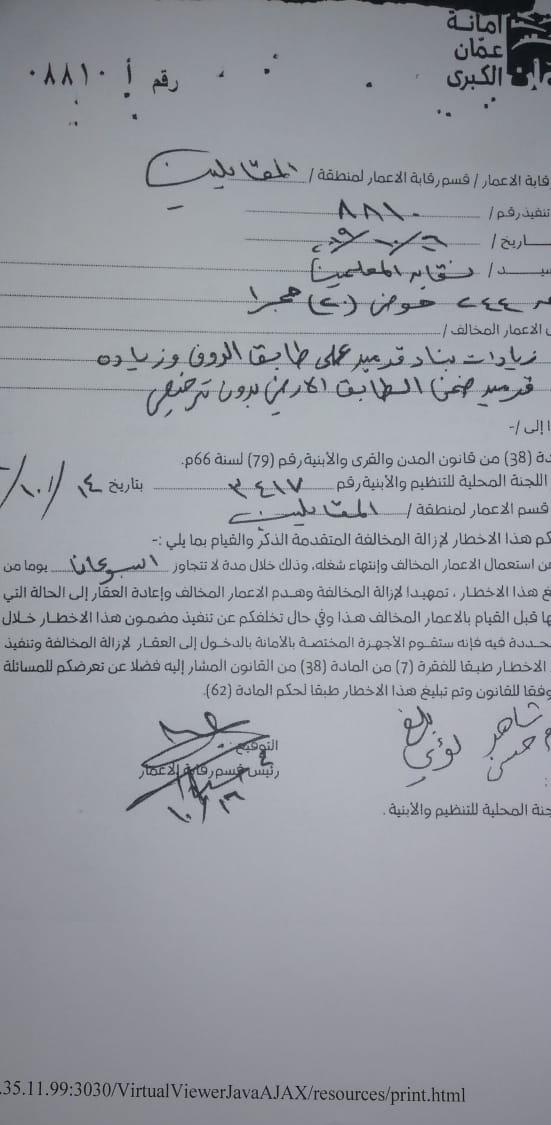 أمانة
عمّان
الكبرى
رقم أ ٠٨٨١٠
رقابة الاعمار / قسم رقابة الاعمار لمنطقة / المقابلين
تنفيذ رقم / ٨٨١٠
اريخ /
يد / نقابة المعلمين
٢٤٤ حوض (٢٠) حجرا
الاعمار المخالف /
زيادات بناء قرميد على طابق الروف وزيادة
قرميد ضمن الطابق الارضي بدون ترخيص
إلى /-
دة (38) من قانون المدن والقرى والأبنية رقم (79) لسنة 66م.
اللجنة المحلية للتنظيم والأبنية رقم ٣٤١٧ بتاريخ ١٤/١٠/
قسم الاعمار لمنطقة / المقابلين
كم هذا الإخطار لإزالة المخالفة المتقدمة الذكر والقيام بما يلي :-
ن استعمال الاعمار المخالف وإنهاء شغله، وذلك خلال مدة لا تتجاوز اسبوعان يوما من
غ هذا الاخطار ، تمهيدا لإزالة المخالفة وهدم الاعمار المخالف وإعادة العقار إلى الحالة التي
ها قبل القيام بالاعمار المخالف هذا وفي حال تخلفكم عن تنفيذ مضمون هذا الإخطار خلال
حددة فيه فإنه ستقوم الأجهزة المختصة بالأمانة بالدخول إلى العقار لإزالة المخالفة وتنفيذ
الاخطار طبقا للفقرة (7) من المادة (38) من القانون المشار إليه فضلا عن تعرضكم للمسائلة
وفقا للقانون وتم تبليغ هذا الاخطار طبقا لحكم المادة (62).
شاهد
حسن
بلغ
لؤي
التوقيع
رئيس قسم رقابة الاعمار
جنة المحلية للتنظيم والأبنية .
.35.11.99:3030/VirtualViewerJavaAJAX/resources/print.html